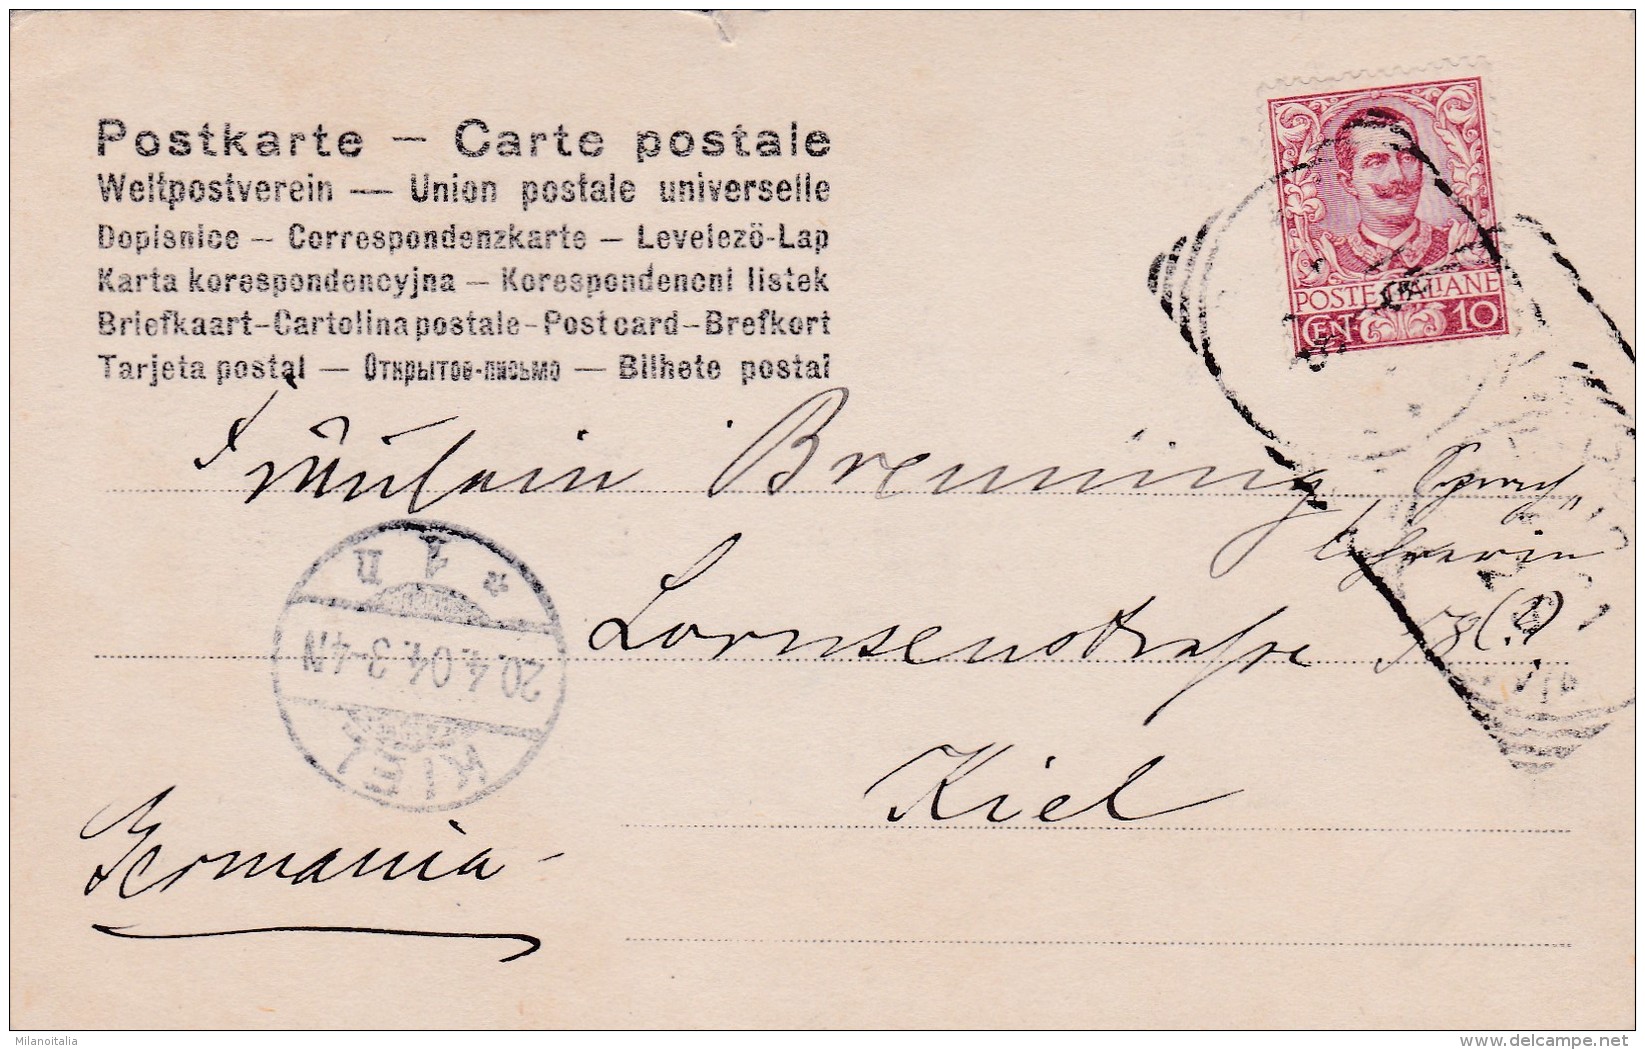 Postkarte — Carte postale
Weltpostverein — Union postale universelle
Dopisnice — Correspondenzkarte — Levelező-Lap
Karta korespondencyjna — Korespondencni listek
Briefkaart-Cartolina postale-Postcard-Brefkort
Tarjeta postal — Открытое-письмо — Bilhete postal
POSTE ITALIANE
CEN. 10
Fräulein Brenning, Sprach„
lehrerin
Lornsenstraße 58 (?)
Kiel
Germania-
* 1 n
20.4.04.3-4N
KIEL
Milanoitalia
delcampe.net